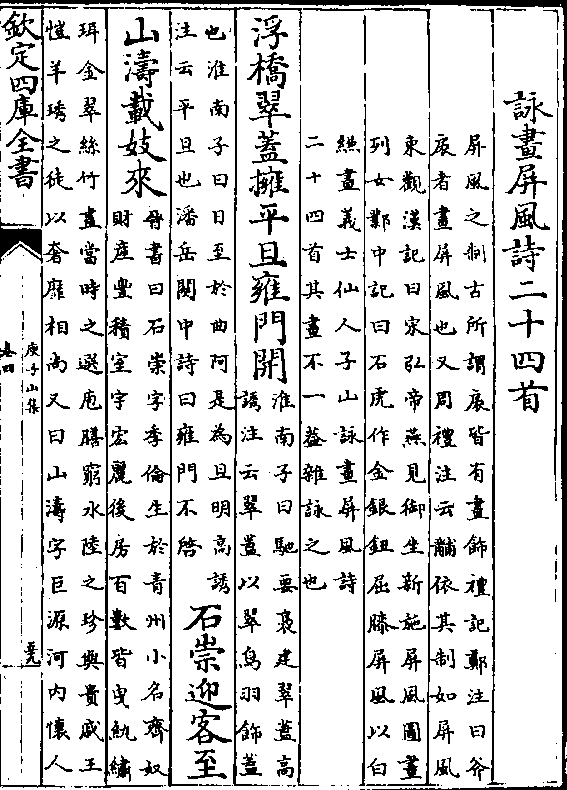 詠畫屏風詩二十四首
屏風之制古所謂扆皆有畫飾禮記鄭注曰斧
扆者畫屏風也又周禮注云黼依其制如屏風
東觀漢記曰宋弘帝燕見御坐新施屏風圖畫
列女鄴中記曰石虎作金銀鈕屈膝屏風以白
縑畫義士仙人子山詠畫屏風詩
二十四首其畫不一蓋雜詠之也
浮橋翠蓋擁平旦雍門開
淮南子曰馳要褭建翠蓋高
誘注云翠蓋以翠鳥羽飾蓋
也淮南子曰日至於曲阿是為旦明高誘
注云平旦也潘岳關中詩曰雍門不啓
石崇迎客至
山濤載妓來
晉書曰石崇字季倫生於青州小名齊奴
財產豐積室宇宏麗後房百數皆曳紈繡
珥金翠絲竹盡當時之選庖膳窮水陸之珍與貴戚王
愷羊琇之徒以奢靡相尚又曰山濤字巨源河內懷人
欽定四庫全書
庾子山集
卷四